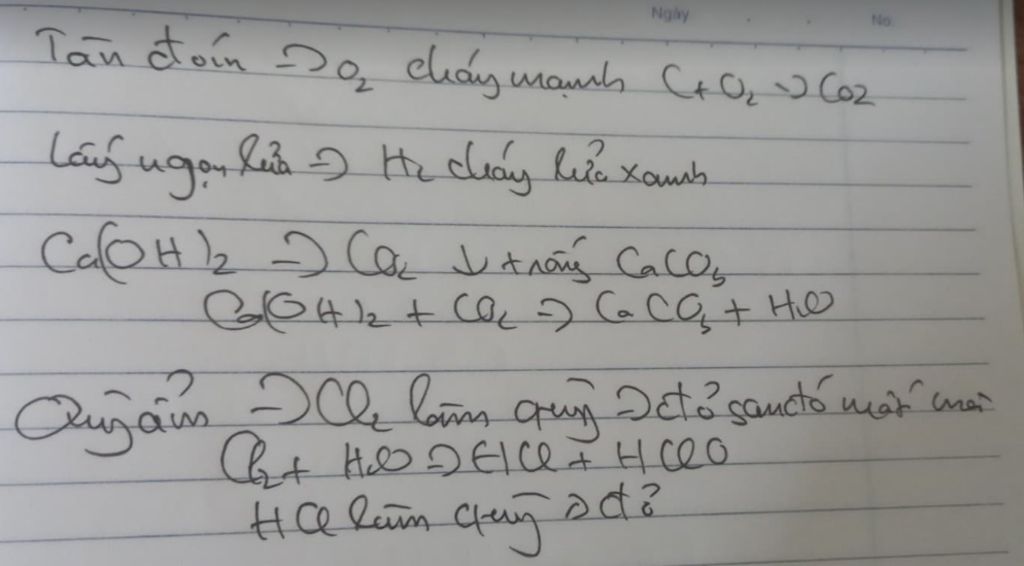 Ngày . . No.
Tàn đóm → O2 cháy mạnh C + O2 → CO2
Lấy ngọn lửa → H2 cháy lửa xanh
Ca(OH)2 → CO2 ↓ trắng CaCO3
Ca(OH)2 + CO2 → CaCO3 + H2O
Quỳ ẩm → Cl2 làm quỳ → đỏ sau đó mất màu
Cl2 + H2O → HCl + HClO
HCl làm quỳ → đỏ